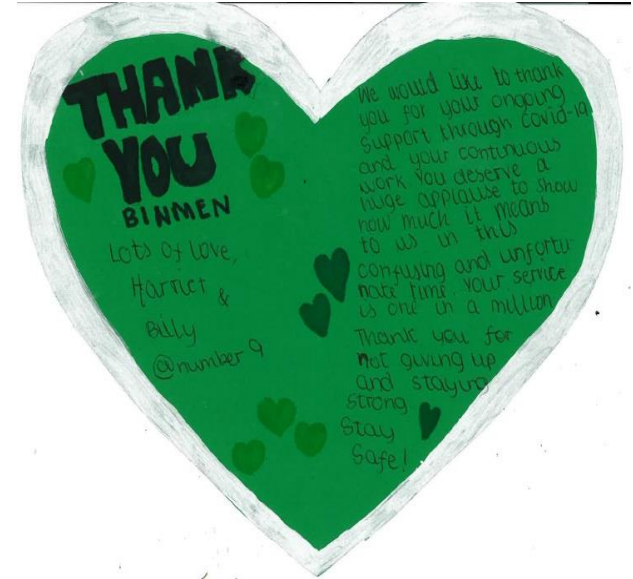 THANK
YOU
BINMEN
Lots of love,
Harriet
&
Billy
@number 9
We would like to thank
you for your ongoing
support through covid-19
and your continuous
work you deserve a
huge applause to show
how much it means
to us in this
confusing and unfortu-
nate time. your service
is one in a million
Thank you for
not giving up
and staying
strong
Stay
Safe!